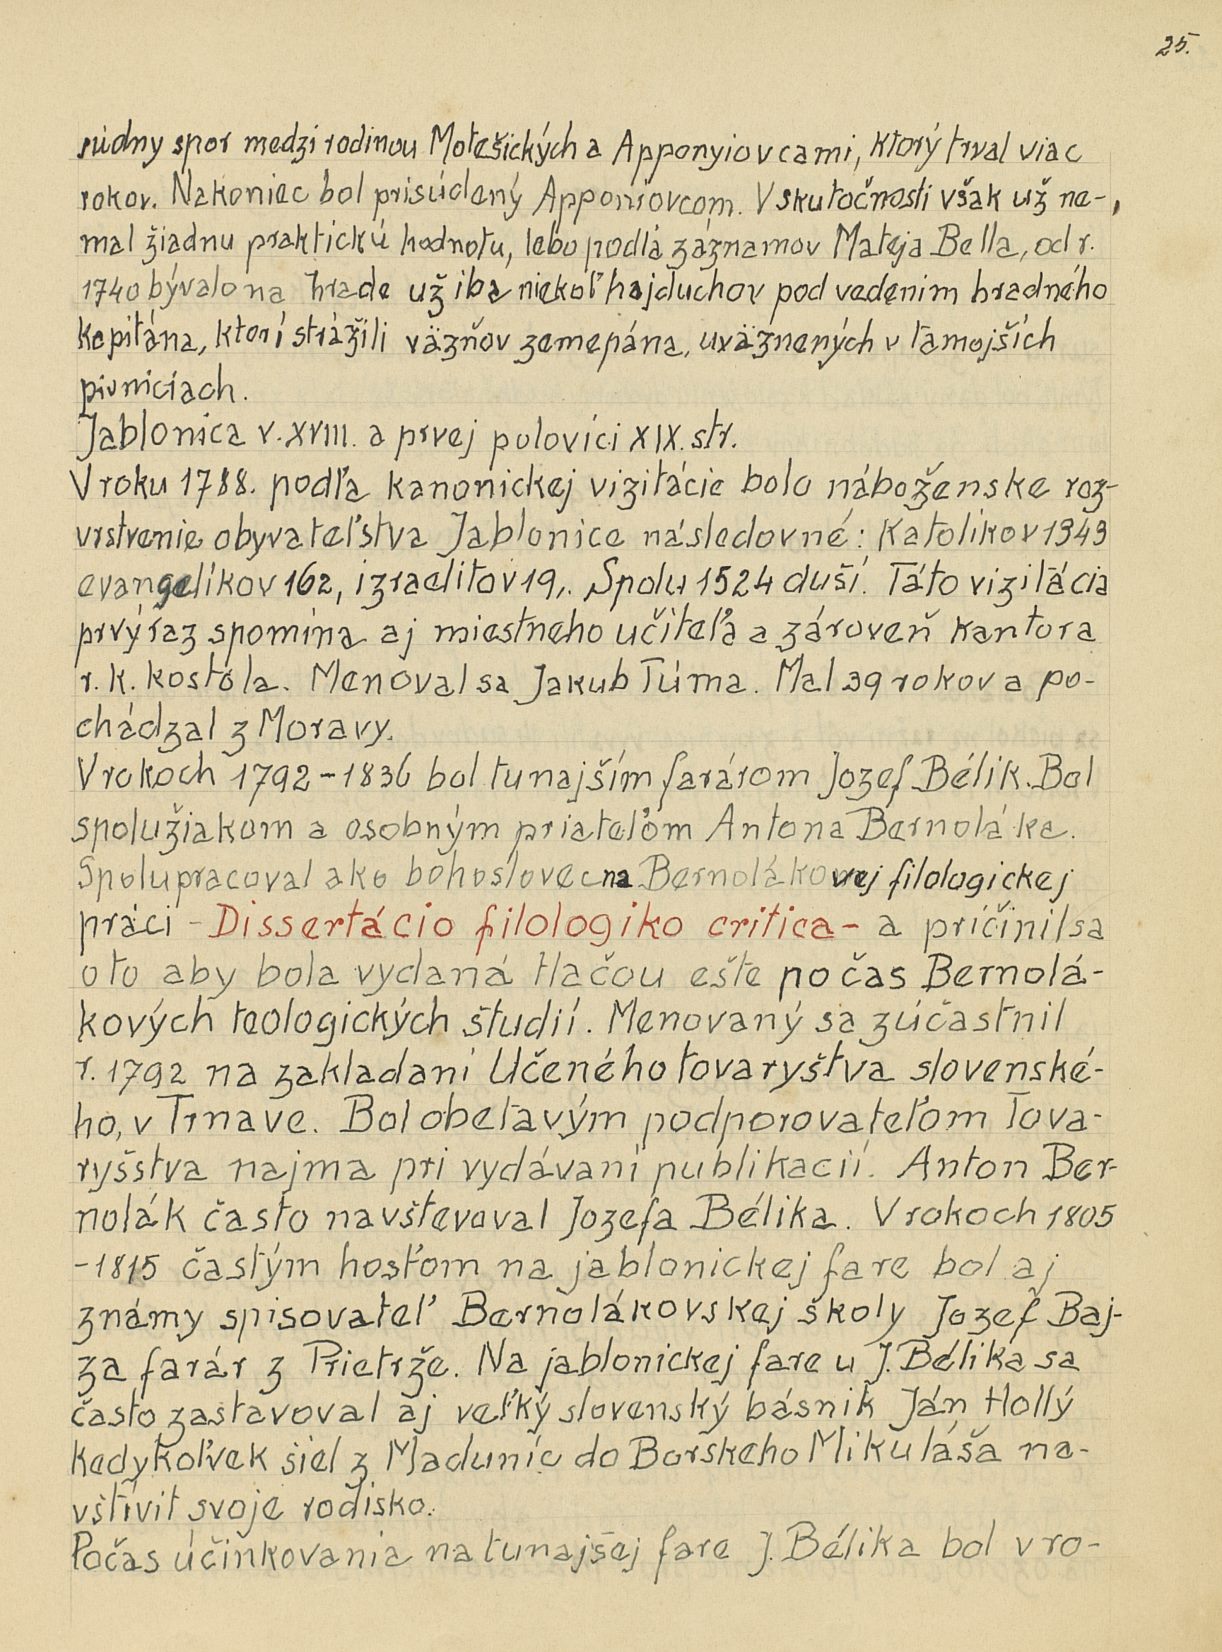 25.
súdny spor medzi rodinou Motešických a Apponyiovcami, ktorý trval viac
rokov. Nakoniec bol prisúdený Apponiovcom. V skutočnosti však už ne-
mal žiadnu praktickú hodnotu, lebo podla záznamov Mateja Bella, od r.
1740 bývalo na hrade už iba niekoľ hajduchov pod vedenim hradného
kapitána, ktorí strážili väzňov zemepána, uväznených v tamojších
pivniciach.
Jablonica v. XVIII. a prvej polovici XIX. str.
V roku 1788. podľa kanonickej vizitácie bolo náboženske roz-
vrstvenie obyvateľstva Jablonice následovné: Katolikov 1343
evangelíkov 162, izraelitov 19,. Spolu 1524 duší. Táto vizitácia
prvýraz spomína aj miestneho učiteľa a zároveň kantora
r. k. kostola. Menoval sa Jakub Túma. Mal 39 rokov a po-
chádzal z Moravy.
V rokoch 1792-1836 bol tunajším farárom Jozef Bélik. Bol
spolužiakom a osobným priateľom Antona Bernoláka.
Spolupracoval ako bohoslovec na Bernolákovej filologickej
práci - Dissertácio filologiko critica - a pričinil sa
oto aby bola vydaná tlačou ešte počas Bernolá-
kových teologických študií. Menovaný sa zúčastnil
r. 1792 na zakladaní Učeného tovaryštva slovenské-
ho, v Trnave. Bol obetavým podporovateľom Tova-
ryšstva najma pri vydávaní publikacií. Anton Ber-
nolák často navštevoval Jozefa Bélika. V rokoch 1805
-1815 častým hosťom na jablonickej fare bol aj
známy spisovateľ Bernolákovskej školy Jozef Baj-
za farár z Prietrže. Na jablonickej fare u J. Bélika sa
často zastavoval aj veľký slovenský básnik Ján Hollý
kedykoľvek šiel z Maduníc do Borskeho Mikuláša na-
vštívit svoje rodisko.
Počas účinkovania na tunajšej fare J. Bélika bol v ro-